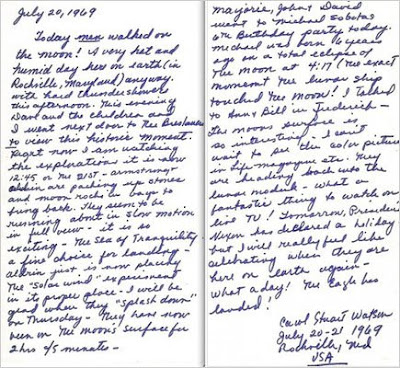 July 20, 1969
Today men walked on
the moon! A very hot and
humid day here on earth (in
Rockville, Maryland) anyway.
with hard thundershowers
this afternoon. This evening
Dave and the children and
I went next door to the
to view this historic moment.
Right now I am watching
the exploration it is now
12:45 on the 21st - Armstrong
Aldrin are packing up cores
and moon rocks, bags to
bring back. They seem to be
running about in slow motion
in full view - it is so
exciting - The Sea of Tranquility
a fine choice for landing -
Aldrin just is now placing
the "solar wind" experiment
in its proper place. I will be
glad when they "splash down"
on Thursday - They have now
been on the moon's surface for
2 hrs 45 minutes -
Marjorie, John & David
went to Michael Sobotas
6th Birthday party today.
Michael was born 6 years
ago on a total eclipse of
the moon at 4:17 (the exact
moment the lunar ship
touched the moon! I talked
to Aunt Bill in Frederick -
The moons surface is
so interesting. I can't
wait to see the color pictures
in Life magazine etc. They
are heading back into the
lunar module - what a
fantastic thing to watch on
live TV! Tomorrow, President
Nixon has declared a holiday
but I will really feel like
celebrating when they are
here on Earth again -
What a day! The Eagle has
landed!
Carol Stuart Watson
July 20-21 1969
Rockville, Md
USA